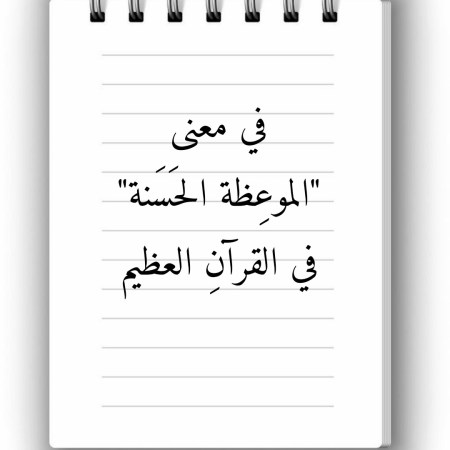 في معنى
"الموعِظة الحَسَنة"
في القرآنِ العظيم